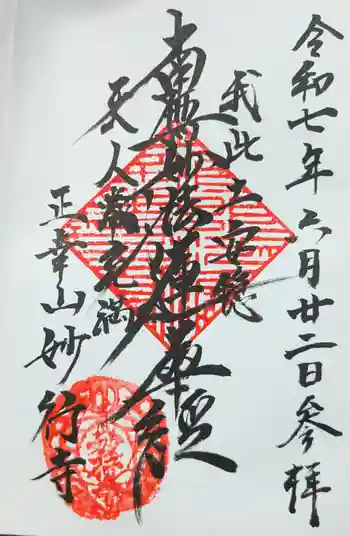 令和七年六月廿二日参拝
我此土安穏
南無妙法蓮華経
天人常充満
正幸山妙行寺